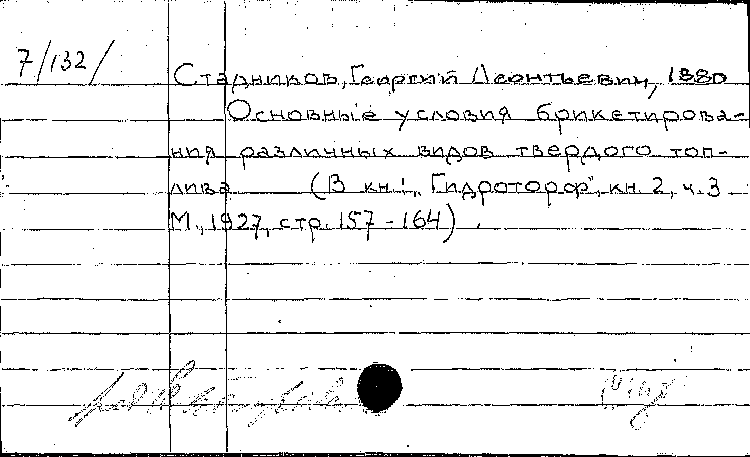 7/132/
Стадников, Георгий Леонтьевич, 1880
Основные условия брикетирова-
ния различных видов твердого топ-
лива (В кн.: „Гидроторф", кн. 2, ч. 3
М., 1927, стр. 157-164).